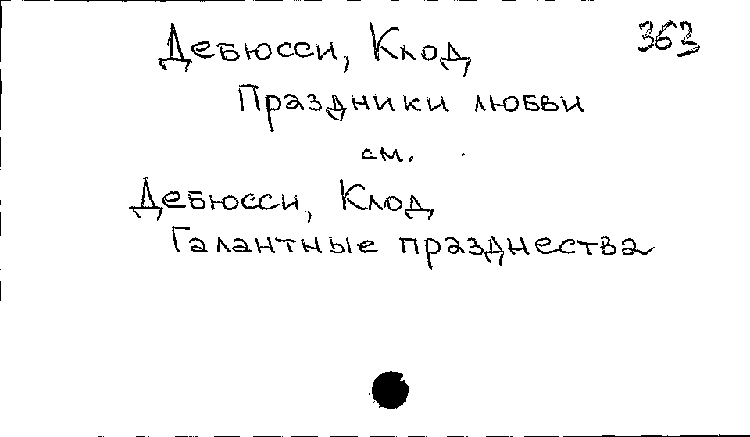 Дебюсси, Клод 363
Праздники любви
см.
Дебюсси, Клод
Галантные празднества